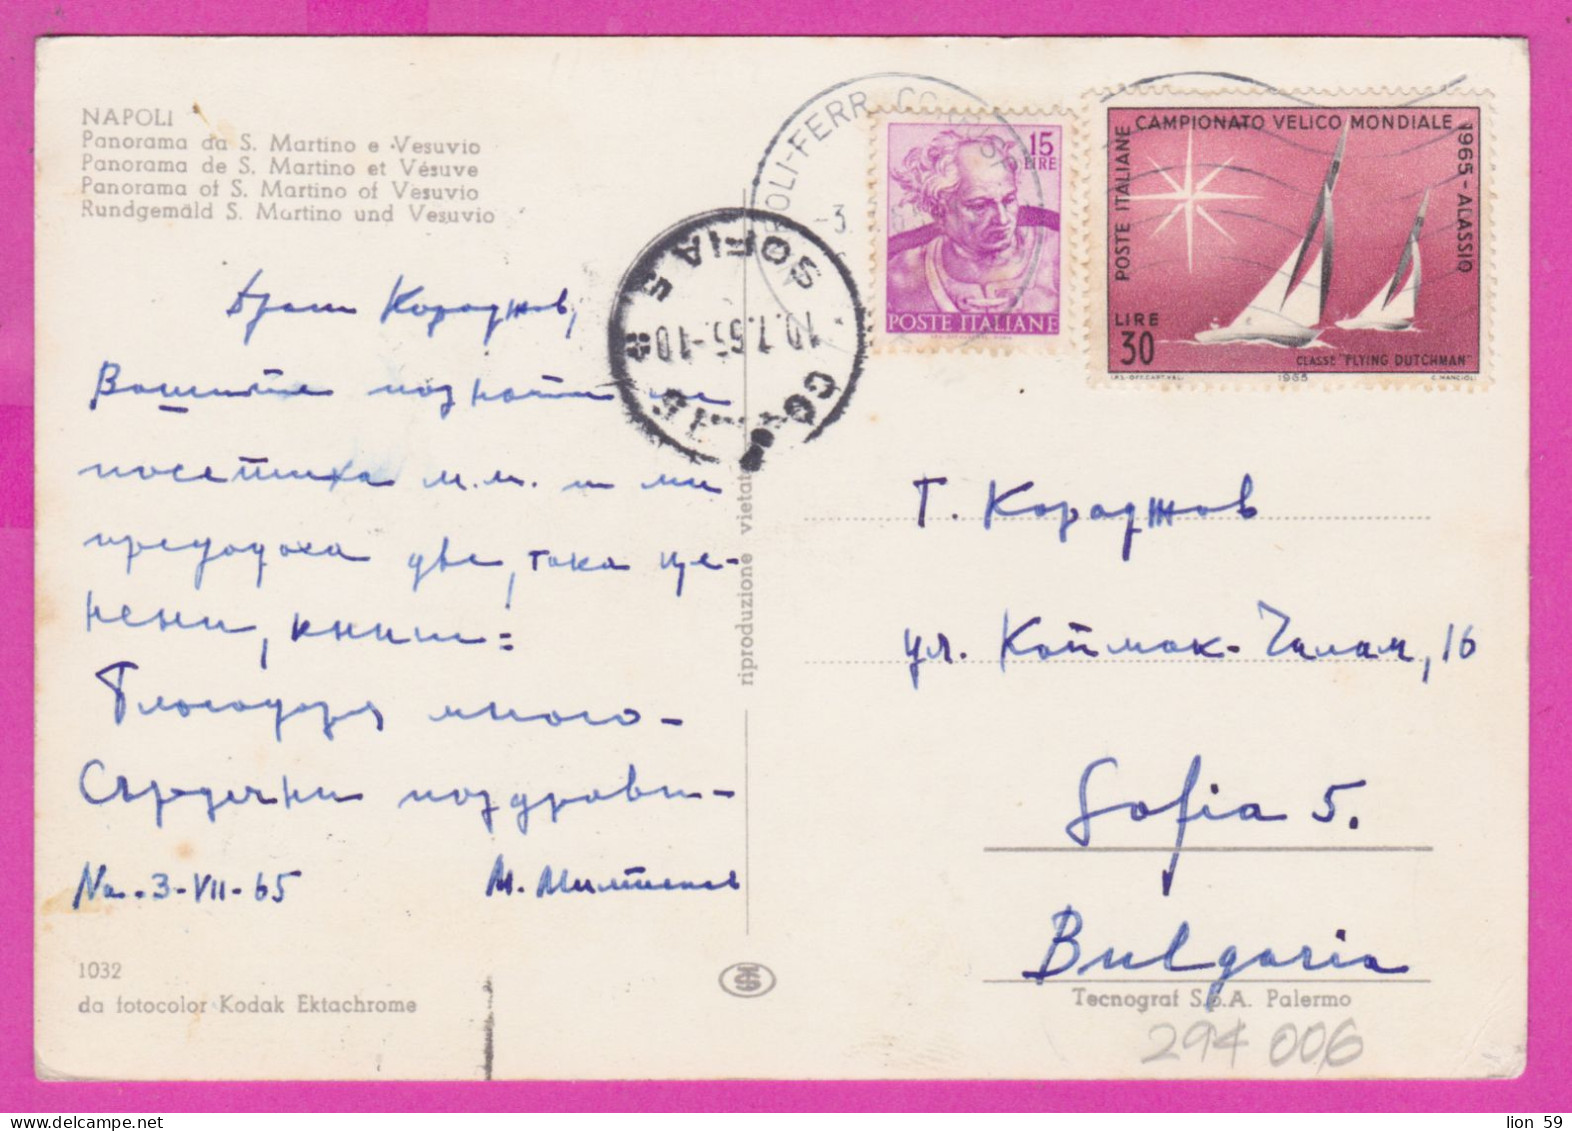 NAPOLI
Panorama da S. Martino e Vesuvio
Panorama de S. Martino et Vésuve
Panorama of S. Martino of Vesuvio
Rundgemäld S. Martino und Vesuvio
Драги Караджов,
Вашите познати не
посетиха м.м. и ми
предадоха две, така це-
нени, книги:
Благодаря много-
Сърдечни поздрави-
Na.-3-VII-65 М.
1032
da fotocolor Kodak Ektachrome
riproduzione vietata
OLI-FERR. CO
-3.
SOFIA 5
10.7.65-10
15
LIRE
POSTE ITALIANE
CAMPIONATO VELICO MONDIALE
1965 - ALASSIO
POSTE ITALIANE
LIRE
30
CLASSE "FLYING DUTCHMAN"
I.P.S.-OFF.CART.-VAL. 1965 C. MANCIOLI
Т. Караджов
ул. Каймак-Чалан, 16
Sofia 5.
Bulgaria
Tecnograf S.p.A. Palermo
294 006
lion 59